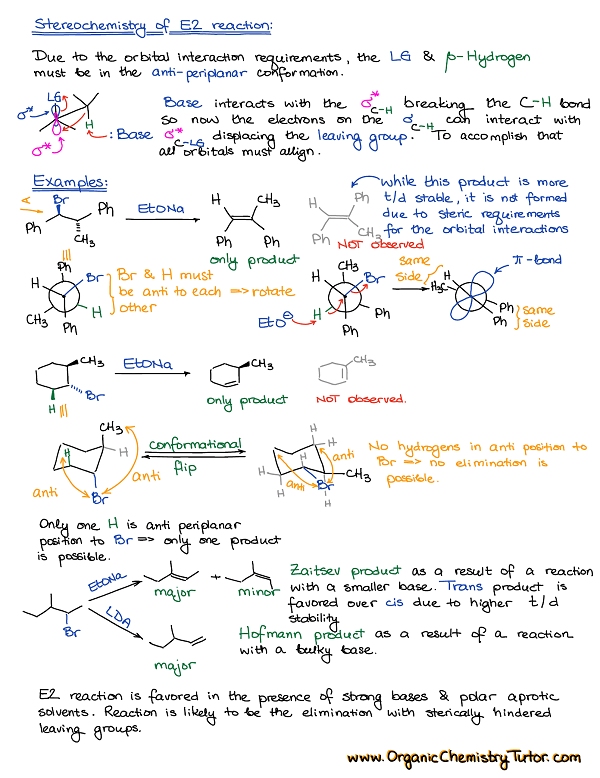 Stereochemistry of E2 reaction:
Due to the orbital interaction requirements, the LG & β-Hydrogen
must be in the anti-periplanar conformation.
LG
σ*
H
:Base
σ*
Base interacts with the σ*C-H breaking the C-H bond
so now the electrons on the σC-H can interact with
σ*C-LG displacing the leaving group. To accomplish that
all orbitals must allign.
Examples:
Br
Ph
Ph
CH3
EtONa
H
CH3
Ph
Ph
only product
H
Ph
Ph
CH3
NOT observed
while this product is more
t/d stable, it is not formed
due to steric requirements
for the orbital interactions
Ph
H
Br
H
CH3
Ph
Br & H must
be anti to each => rotate
other
EtO⊖
CH3
H
Br
H
Ph
Ph
same
side
H
H3C
π-bond
Ph
Ph
same
side
CH3
Br
H
EtONa
CH3
only product
CH3
NOT observed.
CH3
H
H
anti
Br
anti
conformational
flip
H
H
H
H
H
anti
anti
Br
CH3
No hydrogens in anti position to
Br => no elimination is
possible.
Only one H is anti periplanar
position to Br => only one product
is possible.
Br
EtONa
LDA
major
+
minor
major
Zaitsev product as a result of a reaction
with a smaller base. Trans product is
favored over cis due to higher t/d
stability
Hofmann product as a result of a reaction
with a bulky base.
E2 reaction is favored in the presence of strong bases & polar aprotic
solvents. Reaction is likely to be the elimination with sterically hindered
leaving groups.
www.OrganicChemistryTutor.com